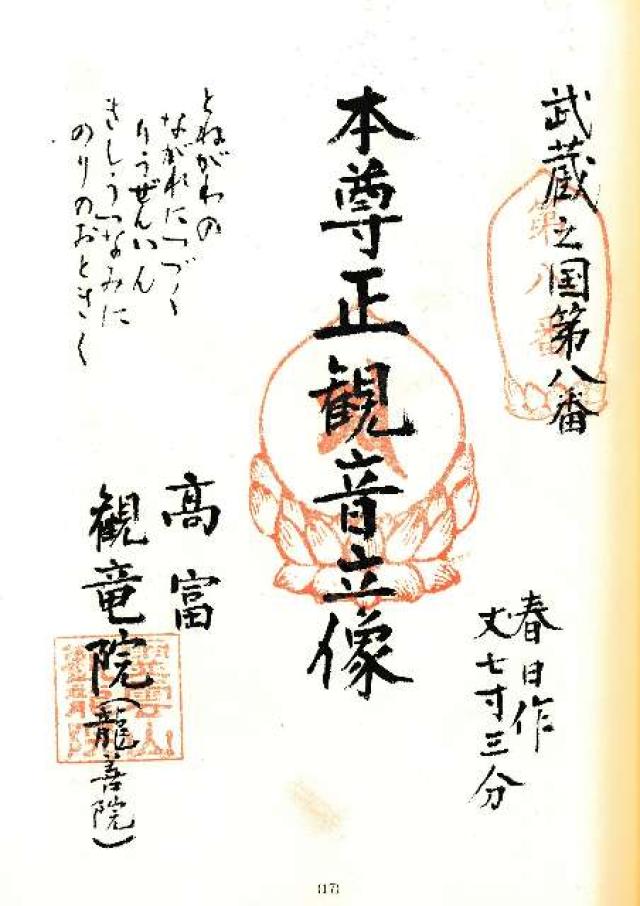 武蔵之国第八番
第八番
春日作
丈七寸三分
本尊正観音立像
とねがわの
ながれにつづく
りうぜんいん
きしうつなみに
のりのおときく
高富
観竜院(龍善院)
(17)